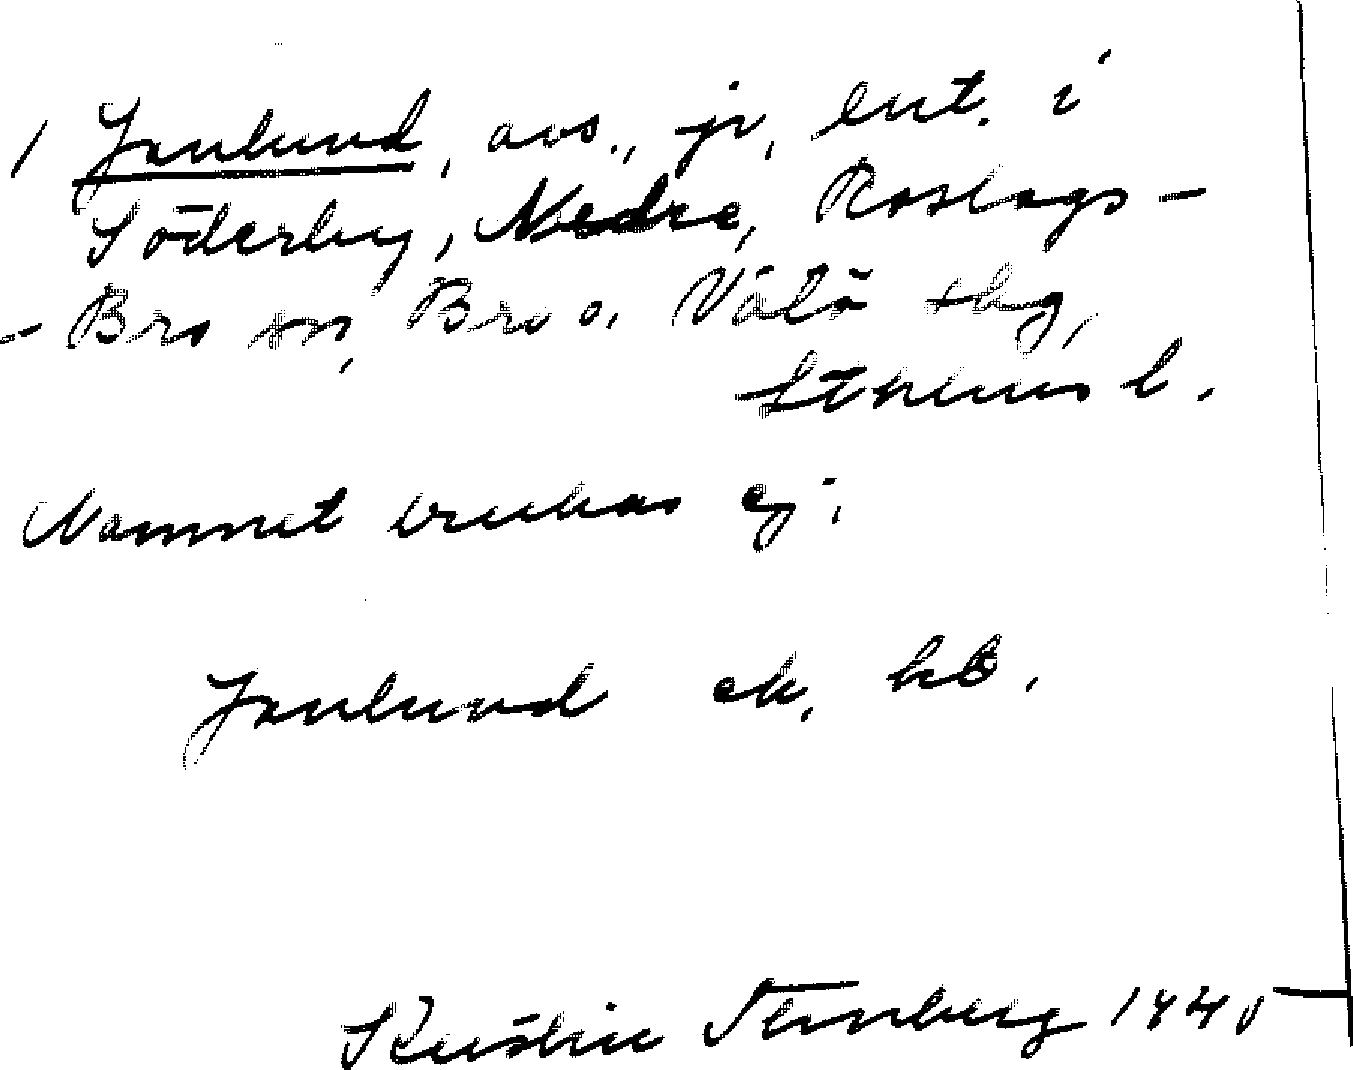 / Janlund, avs., jr, ent. i
Söderby, Nedre, Roslags-
-Bro sn, Bro o. Vätö skg,
Sthlms l.
Namnet brukas ej.
Janlund ek. kb.
Kerstin Sternberg 1945